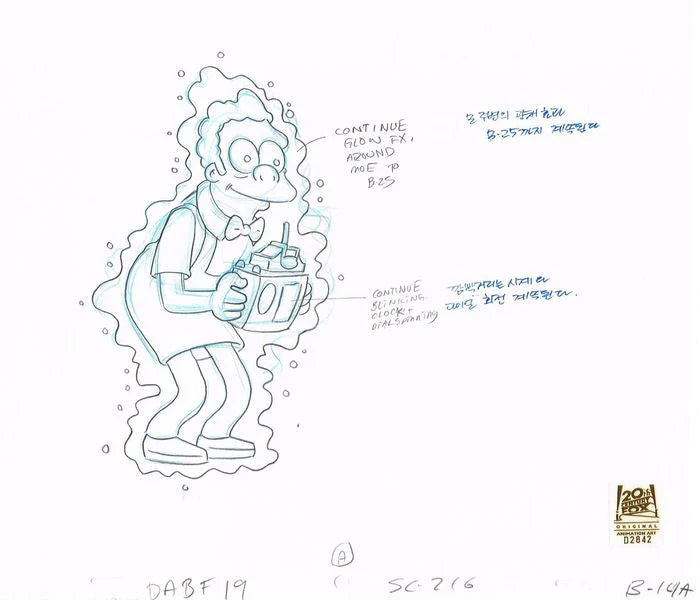 CONTINUE
GLOW FX.
AROUND
MOE TO
B-25
모 주변의 광채 효과
B-25까지 계속된다
CONTINUE
BLINKING
CLOCK +
DIAL SPINNING
깜빡거리는 시계와
다이얼 회전 계속된다.
20th
CENTURY
FOX
ORIGINAL
ANIMATION ART
D2842
A
DABF19
SC-216
B-14A